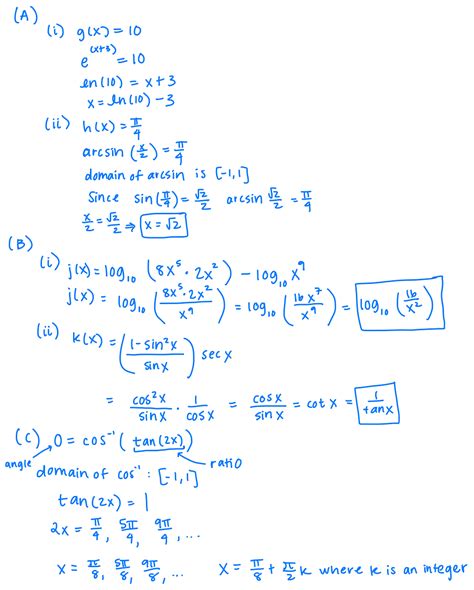 (A)
(i) g(x) = 10
e^(x+3) = 10
ln(10) = x+3
x = ln(10) - 3
(ii) h(x) = π/4
arcsin (x/2) = π/4
domain of arcsin is [-1,1]
Since sin(π/4) = √2/2 arcsin √2/2 = π/4
x/2 = √2/2 ⇒ x = √2
(B)
(i) j(x) = log₁₀ (8x⁵ · 2x²) - log₁₀ x⁹
j(x) = log₁₀ (8x⁵ · 2x² / x⁹) = log₁₀ (16x⁷ / x⁹) = log₁₀ (16 / x²)
(ii) k(x) = (1 - sin²x / sinx) sec x
= cos²x / sinx · 1 / cosx = cosx / sinx = cot x = 1 / tanx
(C) 0 = cos⁻¹ (tan(2x))
angle ratio
domain of cos⁻¹ : [-1,1]
tan(2x) = 1
2x = π/4, 5π/4, 9π/4, ...
x = π/8, 5π/8, 9π/8, ... x = π/8 + π/2 k where k is an integer